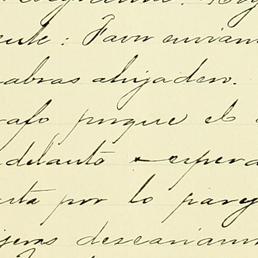 ente: Favor enviarn
abras ahijaden.
rafo porque el
delanto espera
sta por lo pare
jeros desearian